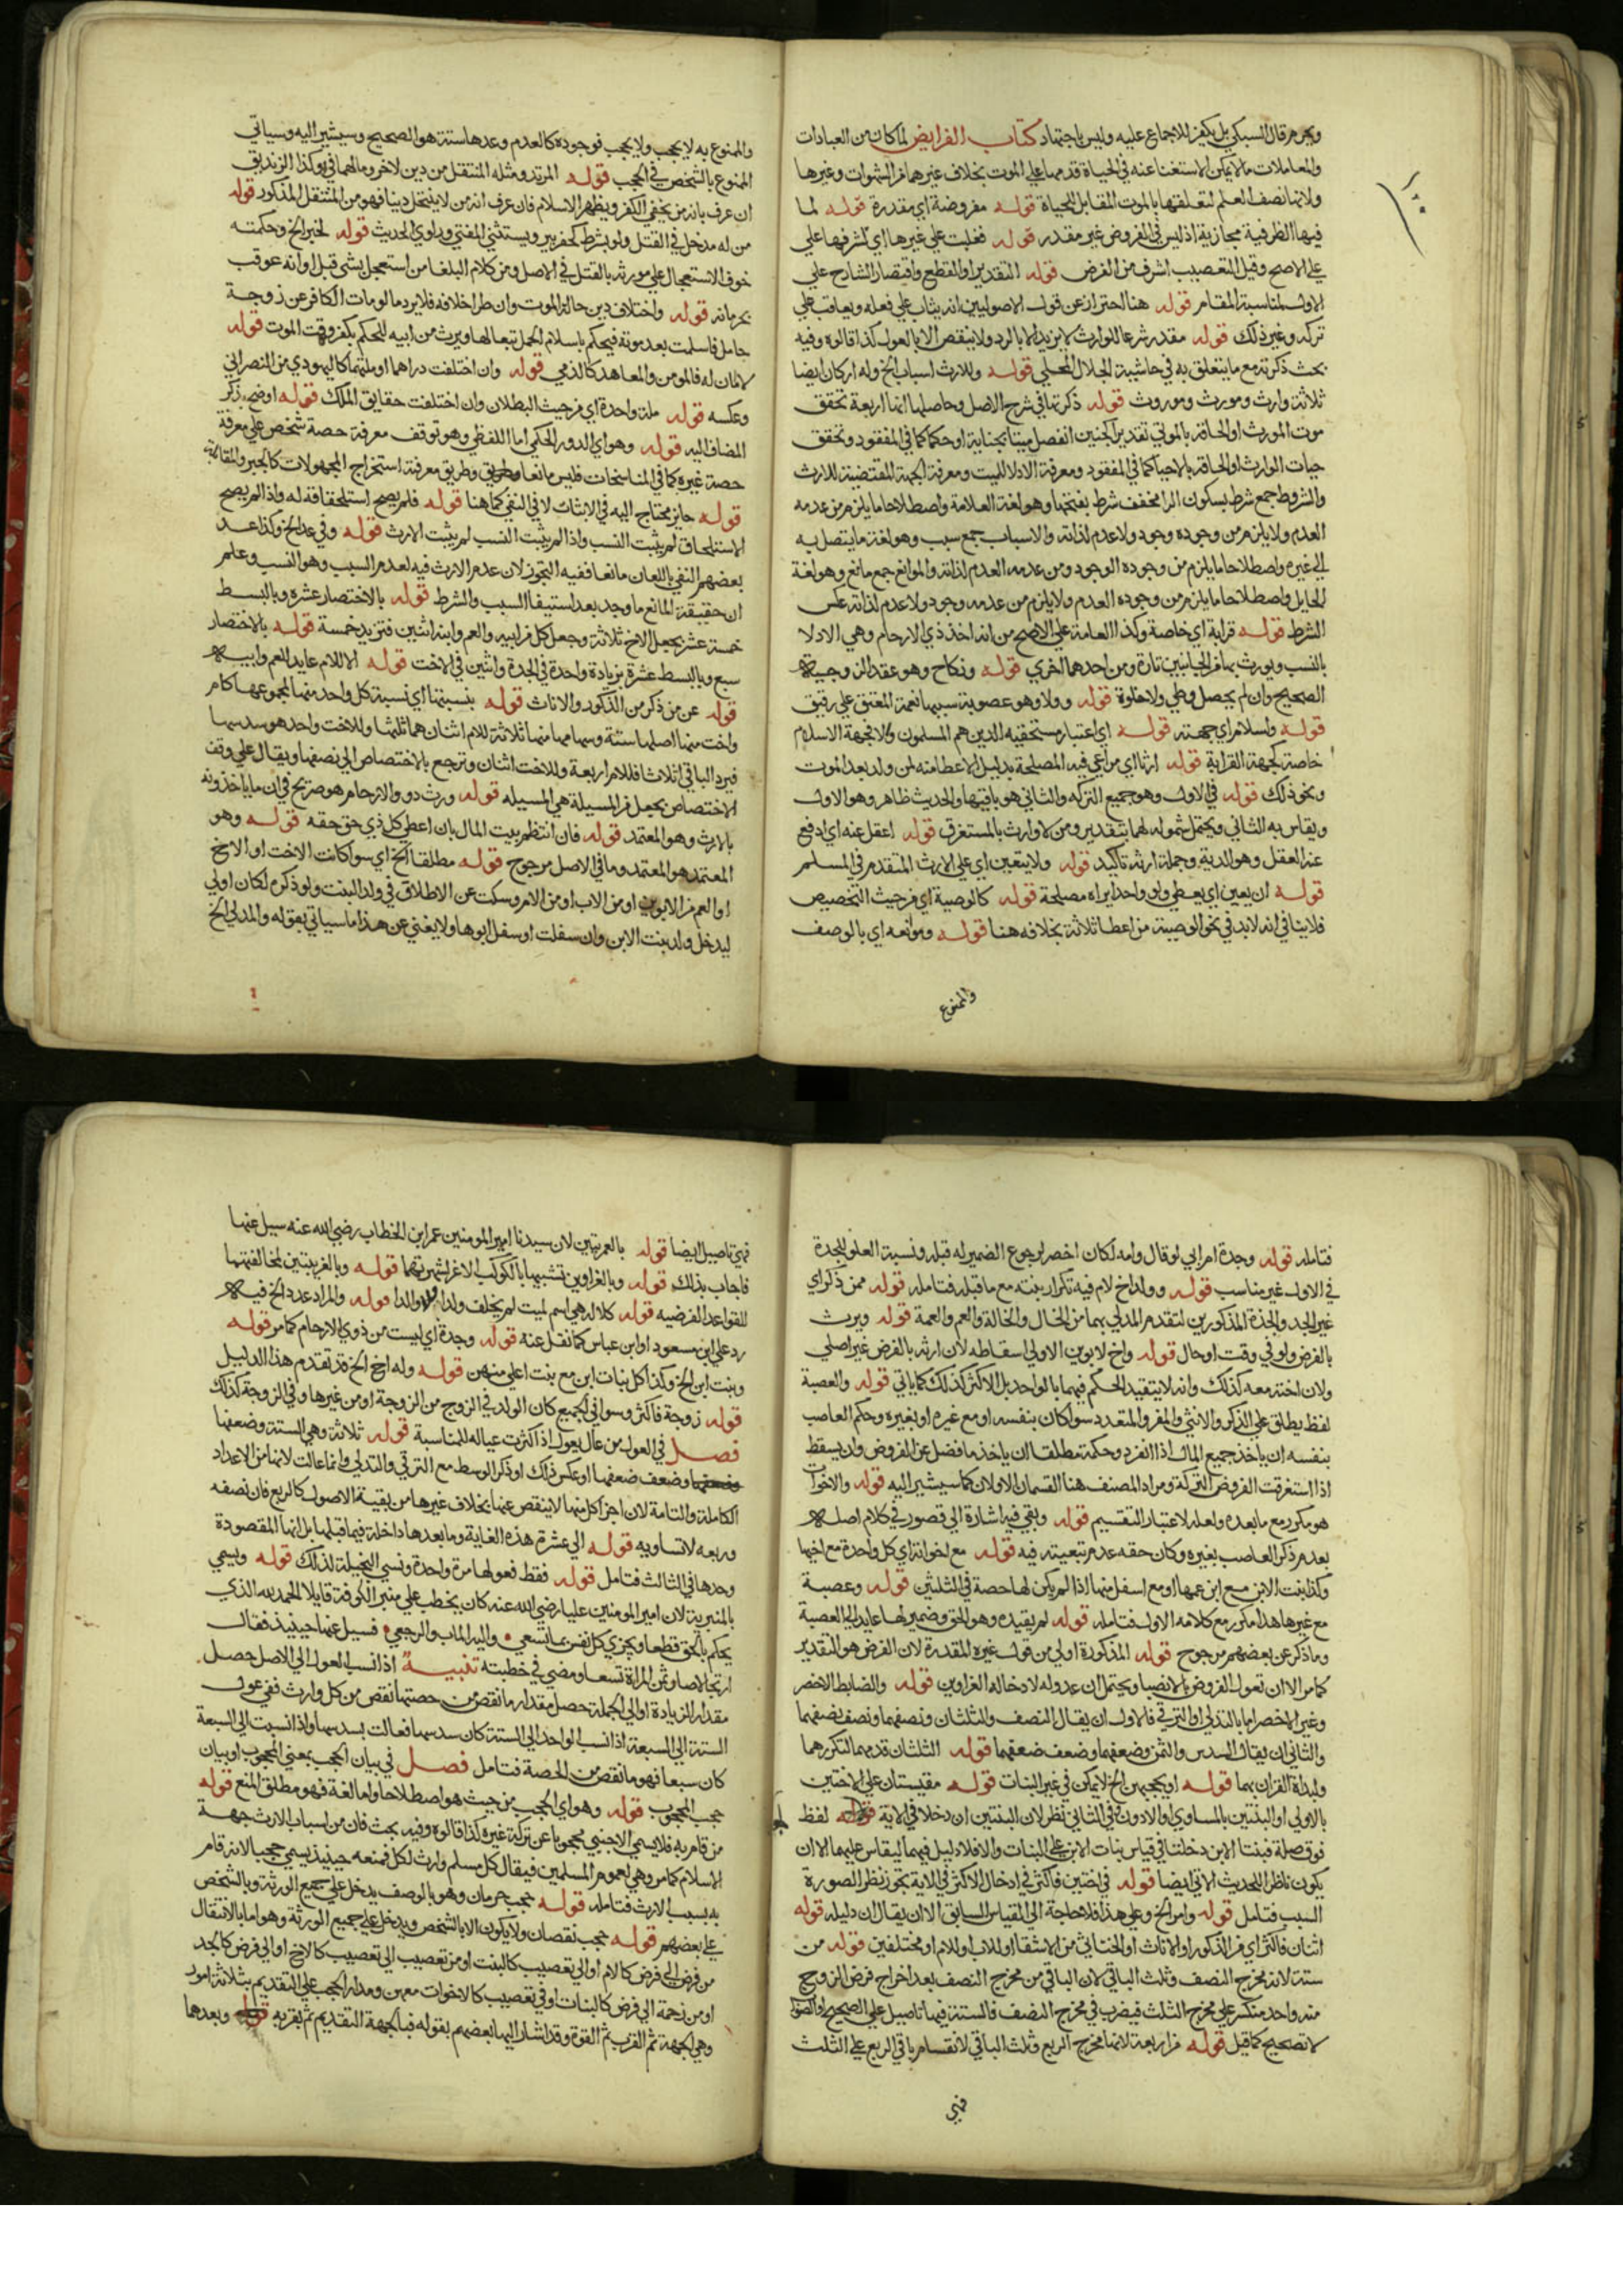 وبحرم قال السبكي بل يكفر للاجماع عليه وليس باجتهاد كتاب الفرايض لما كان من العبادات
والمعاملات ما لا يمكن الاستغنا عنه في الحياة قدمها علي الموت بخلاف غيرهما من الشهوات وغيرها
ولانها نصف العلم لتعلقها بالموت المقابل للحياة قوله مفروضة اي مقدرة قوله لما
فيها الظرفية مجازية اذ ليس في الفروض غير مقدر قوله فغلبت علي غيرها اي لشرفها علي
علي الاصح وقيل التعصيب اشرف من الفرض قوله التقدير او القطع واقتصار الشارح علي
الاول لمناسبة المقام قوله هنا احتراز عن قول الاصوليين انه يثاب علي فعله ويعاقب علي
تركه وغير ذلك قوله مقدر شرعا للوارث لا يزيد الا بالرد ولا ينقص الا بالعول كذا قالوه وفيه
بحث ذكرته مع ما يتعلق به في حاشية الجلال المحلي قوله وللارث اسباب الخ وله اركان ايضا
ثلاثة وارث ومورث وموروث قوله ذكرتها في شرح الاصل وحاصلها انها اربعة تحقق
موت المورث او الحاقه بالموتي تقديرا كجنين انفصل ميتا بجناية او حكما كما في المفقود وتحقق
حيات الوارث او الحاقه بالاحيا كما في المفقود ومعرفة الادلا للميت ومعرفة الجهة المقتضية للارث
والشروط جمع شرط بسكون الرا مخفف شرط بفتحها وهو لغة العلامة واصطلاحا ما يلزم من عدمه
العدم ولا يلزم من وجوده وجود ولا عدم لذاته والاسباب جمع سبب وهو لغة ما يتصل به
الي غيره واصطلاحا ما يلزم من وجوده الوجود ومن عدمه العدم لذاته والموانع جمع مانع وهو لغة
الحايل واصطلاحا ما يلزم من وجوده العدم ولا يلزم من عدمه وجود ولا عدم لذاته عكس
الشرط قوله قرابة اي خاصة وكذا العامة علي الاصح من انه اخذ ذي الارحام وهي الادلا
بالنسب ويورث بها من الجانبين تارة ومن احدهما اخري قوله ونكاح وهو عقد الزوجية
الصحيح وان لم يحصل وطي ولا خلوة قوله وولا وهو عصوبة سببها نعمة المعتق علي رقيق
قوله واسلام اي جهته قوله اي اعتبار مستحقيه الذين هم المسلمون والا فجهة الاسلام
خاصة كجهة القرابة قوله ارثا اي مراعي فيه المصلحة بدليل الاعطا منه لمن ولد بعد الموت
ونحو ذلك قوله في الاول وهو جميع التركه والثاني هو باقيها والحديث ظاهر وهو الاول
ويقاس به الثاني ويحتمل شموله لهما بتقدير ومن لا وارث بالمستغرق قوله اعقل عنه اي ادفع
عنه العقل وهو الدية وجملة ارثه تاكيد قوله ولا يتعين اي علي الارث المتقدم في المسلم
قوله ان يعين اي يعطي ولو واحدا يراه مصلحة قوله كالوصية اي من حيث التخصيص
فلا ينافي انه لابد في نحو الوصية من اعطا ثلاثة بخلافه هنا قوله وموانعه اي بالوصف
والممنوع
والممنوع به لا يحجب ولا يحجب فوجوده كالعدم وعدها ستة هو الصحيح وسيشير اليه وسياتي
الممنوع بالشخص في الحجب قوله المرتد ومثله المنتقل من دين لاخر ومالهما في وكذا الزنديق
ان عرف بانه من يخفي الكفر ويظهر الاسلام فان عرف انه من لا ينتحل دينا فهو من المنتقل المذكور قوله
من له مدخل في القتل ولو بشرط كحفر بير ويستثني المفتي وراوي الحديث قوله لخبر الخ وحكمته
خوف الاستعجال علي مورثه بالقتل في الاصل ومن كلام البلغا من استعجل بشي قبل اوانه عوقب
بحرمانه قوله واختلاف دين حالة الموت وان طرا خلافه فلا يرد ما لو مات الكافر عن زوجة
حامل فاسلمت بعد موته فيحكم باسلام الحمل تبعا لها ويرث من ابيه للحكم بكفره وقت الموت قوله
لا امان له فالمومن والمعاهد كالذمي قوله وان اختلفت دراهما او ملتهما كاليهودي من النصراني
وعكسه قوله ملة واحدة اي من حيث البطلان وان اختلفت حقايق الملك قوله اوضح بذكر
المضاف اليه قوله وهو اي الدور الحكمي اما اللفظي وهو توقف معرفة حصة شخص علي معرفة
حصة غيره كما في المناسخات فليس مانعا وطريق معرفة استخراج المجهولات كالجبر والمقابلة
قوله حايز محتاج اليه في الاثبات لا في النفي كما هنا قوله فلم يصح استلحاقه له واذا لم يصح
الاستلحاق لم يثبت النسب واذا لم يثبت النسب لم يثبت الارث قوله وفي عد الخ وكذا عد
بعضهم النفي باللعان مانعا ففيه التجوز لان عدم الارث فيه لعدم السبب وهو النسب وعلم
ان حقيقة المانع ما وجد بعد استيفا السبب والشرط قوله بالاختصار عشرة وبالبسط
خمسة عشر بجعل الاخ ثلاثة وجعل كل من ابنيه والعم وابنه اثنين فتزيد خمسة قوله بالاختصار
سبع وبالبسط عشرة بزيادة واحدة في الجدة واثنين في الاخت قوله الا للام عايد للعم وابنيه
قوله عن من ذكر من الذكور والاناث قوله بنسبتها اي نسبة كل واحد منهما لمجموعهما كام
واخت منها اصلها ستة وسهامهما منها ثلاثة للام اثنان هما ثلثها وللاخت واحد هو سدسها
فيرد الباقي اثلاثا فللام اربعة وللاخت اثنان وترجع بالاختصاص الي نصفها ويقال علي وفق
الاختصاص بجعل من المسيلة هي المسيله قوله ورث ذوو الارحام هو صريح في ان ما ياخذونه
بالارث وهو المعتمد قوله فان انتظم بيت المال بان اعطي كل ذي حق حقه قوله وهو
المعتمد هو المعتمد وما في الاصل مرجوح قوله مطلقا الخ اي سوا كانت الاخت او الاخ
او العم من الابوين او من الاب او من الام وسكت عن الاطلاق في ولد البنت ولو ذكره لكان اولي
ليدخل ولد بنت الابن وان سفلت او سفل ابوها ولا يغني عن هذا ما سياتي بقوله والمدلي الخ
فتامله قوله وجدة ام ابي لو قال وامه لكان اخصر لرجوع الضمير له قبله ونسبة العلو للجدة
في الاول غير مناسب قوله وولد اخ لام فيه تكرار بنته مع ما قبله فتامله قوله ممن ذكر اي
غير الجد والجدة المذكورين لتقدم المدلي بهما من الخال والخالة والعم والعمة قوله ويرث
بالفرض ولو في وقت او حال قوله واخ لابوين الاولي اسقاطه لان ارثه بالفرض غير اصلي
ولان اخته معه كذلك وانه لا يتقيد الحكم فيهما بالواحد بل الاكثر كذلك كما ياتي قوله والعصبة
لفظ يطلق علي الذكر والانثي والمفرد والمتعدد سوا كان بنفسه او مع غيره او بغيره وحكم العاصب
بنفسه ان ياخذ جميع المال اذا انفرد وحكمه مطلقا ان ياخذ ما فضل عن الفروض وان يسقط
اذا استغرقت الفروض التركة ومراد المصنف هنا القسمان الاولان كما سيشير اليه قوله والاخوات
هو مكرر مع ما بعده ولعله لاعتبار التقسيم قوله وبقي فيه اشارة الي قصور في كلام اصله
بعدم ذكر العاصب بغيره وكان حقه عدم تبعيته فيه قوله مع اخواته اي كل واحدة مع اخيها
وكذا بنت الابن مع ابن عمها او مع اسفل منها اذا لم يكن لها حصة في الثلثين قوله وعصبة
مع غيرها هذا مكرر مع كلامه الاول فتامله قوله لم يقيده وهو الحق وضمير لها عايد الي العصبة
وما ذكر عن بعضهم مرجوح قوله المذكورة اولي من قول غيره المقدرة لان الفرض هو التقدير
كما مر الا ان تعول الفروض بالانصبا ويحتمل ان عدوله لادخاله الغراوين قوله والضابط الاخصر
وغير الاخصر اما بالتدلي او الترقي فالاول ان يقال النصف والثلثان ونصفهما ونصف نصفهما
والثاني ان يقال السدس والثمن وضعفهما وضعف ضعفهما قوله الثلثان قدمهما لتكررهما
ولبداة القران بهما قوله او يحجبهن الخ لا يمكن في غير البنات قوله مقيستان علي الاختين
بالاولي او البنتين بالمساوي او الادون وفي الثاني نظر لان البنتين ان دخلا في الاية قوله لفظ
فوق صلة فبنتا الابن دخلتا في قياس بنات الابن علي البنات والا فلا دليل فيهما ليقاس عليهما الا ان
يكون ناظرا للحديث الاتي ايضا قوله في اختين فاكثر في ادخال الاكثر في الاية تجوز نظر الصورة
السبب فتامل قوله وام الخ وعلي هذا فلا حاجة الي القياس السابق الا ان يقال ان دليله قوله
اثنان فاكثر اي من الذكور او الاناث او الخناثي من الاشقا او للاب او للام او مختلفين قوله من
ستة لانه مخرج النصف وثلث الباقي لان الباقي من مخرج النصف بعد اخراج فرض الزوج
منه واحد منكسر علي مخرج الثلث فيضرب في مخرج النصف فالستة فيها تاصيل علي الصحيح
لا تصحيح كما قيل قوله من اربعة لانها مخرج الربع وثلث الباقي لانقسام باقي الربع علي الثلث
فهي
فهي تاصيل ايضا قوله بالعمريتين لان سيدنا امير المومنين عمر ابن الخطاب رضي الله عنه سيل عنهما
فاجاب بذلك قوله وبالغراوين تشبيها بالكوكب الاغر لشهرتهما قوله وبالغريبتين لمخالفتهما
للقواعد الفرضيه قوله كلاله هي اسم لميت لم يخلف ولدا ولا والدا قوله والمراد عدد الخ فيه
رد علي ابن مسعود او ابن عباس كما نقل عنه قوله وجدة اي ليست من ذوي الارحام كما مر قوله
وبنت ابن الخ وكذا كل بنات ابن مع بنت اعلي منهن قوله وله اخ الخ قد تقدم هذا الدليل
قوله زوجة فاكثر وسوا في الجميع كان الولد في الزوج من الزوجة او من غيرها وفي الزوجة كذلك
فصل في العول من عال يعول اذا كثرت عياله للمناسبة قوله ثلاثة وهي الستة وضعفها
وضعف ضعفها او عكس ذلك او ذكر الوسط مع الترقي والتدلي وانما عالت لانها من الاعداد
الكاملة والتامة لان اجزا كل منها لا ينقص عنها بخلاف غيرها من بقية الاصول كالربع فان نصفه
وربعه لا تساويه قوله الي عشرة هذه الغاية وما بعدها داخلة فيما قبلها بل انها المقصودة
وحدها في الثالث فتامل قوله فقط فعولها مرة واحدة وتسمي البخيلة لذلك قوله وتسمي
بالمنبرية لان امير المومنين عليا رضي الله عنه كان يخطب علي منبر الكوفة قايلا الحمد لله الذي
يحكم بالحق قطعا ويجزي كل نفس بما تسعي واليه الماب والرجعي فسيل عنها حينيذ فقال
ارتجالا صار ثمن المراة تسعا ومضي في خطبته تنبيه اذا نسب العول الي الاصل حصل
مقدار الزيادة او الي الجملة حصل مقدار ما نقص من حصتها نقص من كل وارث ففي عول
الستة الي السبعة اذا نسب الواحد الي الستة كان سدسها فعالت بسدسها واذا نسبت الي السبعة
كان سبعا فهو ما نقص من الحصة فتامل فصل في بيان الحجب بمعني المحجوب او بيان
حجب المحجوب قوله وهو اي الحجب من حيث هو اصطلاحا واما لغة فهو مطلق المنع قوله
من قام به فلا يسمي الاجنبي محجوبا عن تركة غيره كذا قالوه وفيه بحث فان من اسباب الارث جهة
الاسلام كما مر وهي لعموم المسلمين فيقال كل مسلم وارث لكل فمنعه حينيذ يسمي حجبا لانه قام
به سبب الارث فتامله قوله حجب حرمان وهو بالوصف يدخل علي جميع الورثة وبالشخص
علي بعضهم قوله حجب نقصان ولا يكون الا بالشخص ويدخل علي جميع الورثة وهو اما بالانتقال
من فرض الي فرض كالام او الي تعصيب كالبنت او من تعصيب الي تعصيب كالاخ او الي فرض كالجد
او من زحمة الي فرض كالبنات او في تعصيب كالاخوات معهن ومدار الحجب علي التقديم بثلاثة امور
وهي الجهة ثم القرب ثم القوة وقد اشار اليها بعضهم بقوله فبالجهة التقديم ثم بقربه وبعدهما